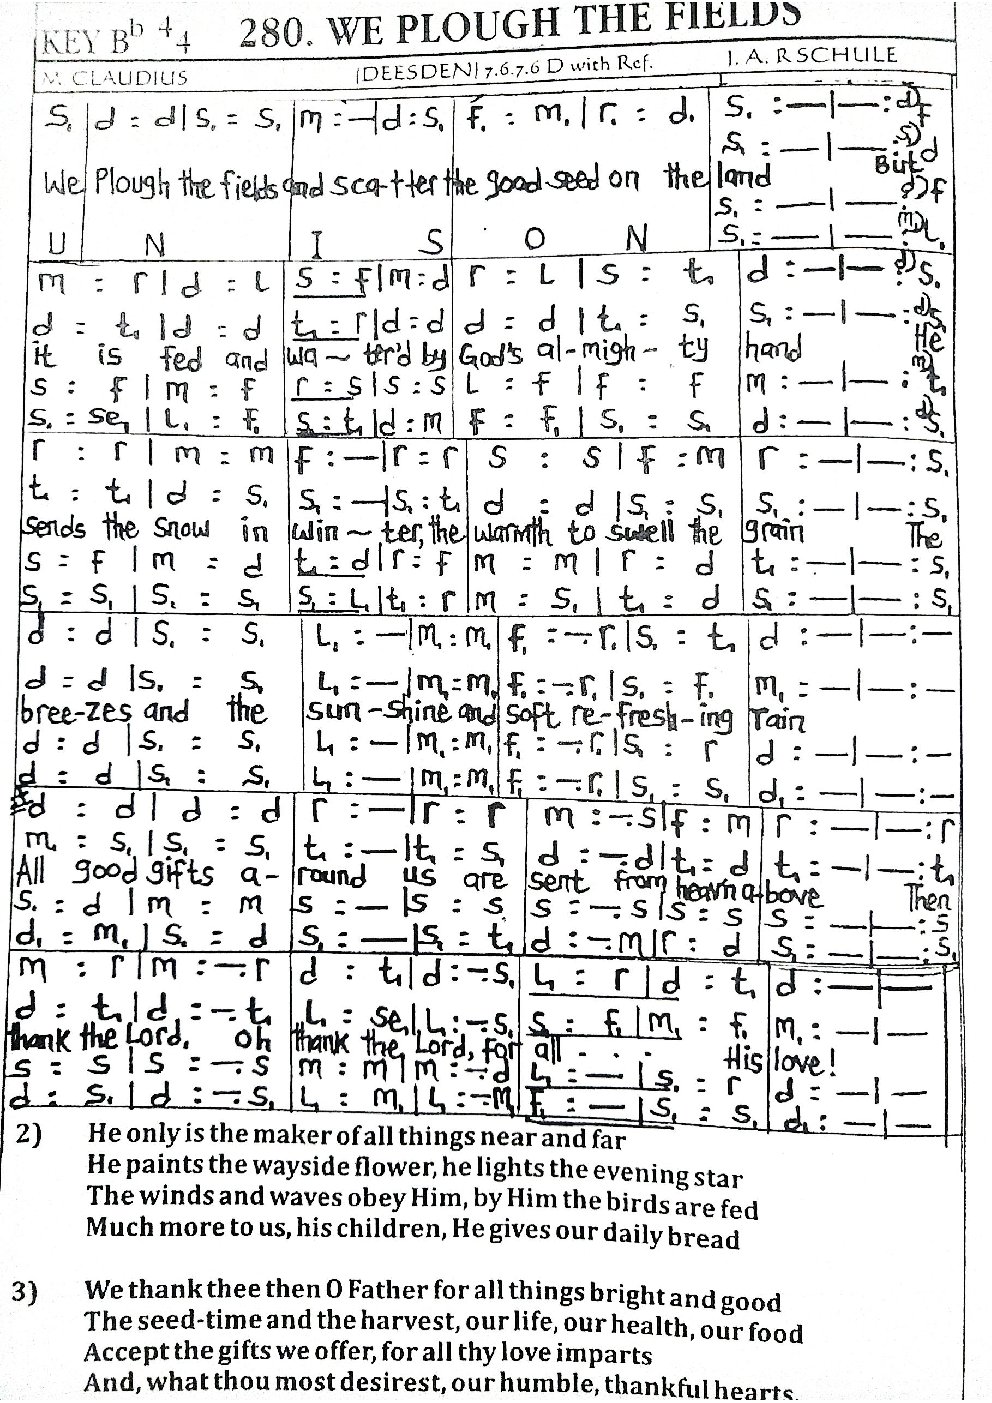 KEY Bb 4/4 280. WE PLOUGH THE FIELDS
M. CLAUDIUS (DEESDEN) 7.6.7.6 D with Ref. J. A. P. SCHULE
S₁ | d : d | s₁ : s₁ | m : — | d : s₁ | f₁ : m₁ | r₁ : d₁ | s₁ : — | — : d)f
s₁ : — | — : s)d
We Plough the fields and sca-tter the good seed on the land But
s₁ : — | — : d)f
U N I S O N s₁ : — | — : m)L₁
m : r | d : L | s : f | m : d | r : L | s : t₁ | d : — | — : d)s₁
d : t₁ | d : d | t₁ : r | d : d | d : d | t₁ : s₁ | s₁ : — | — : d)s₁
it is fed and wa ~ ter'd by God's al-migh-ty hand He
s : f | m : f | r : s | s : s | L : f | f : f | m : — | — : m)t₁
s₁ : se₁ | L₁ : f₁ | s₁ : t₁ | d : m | f : f₁ | s₁ : s₁ | d : — | — : d)s₁
r : r | m : m | f : — | r : r | s : s | f : m | r : — | — : s₁
t₁ : t₁ | d : s₁ | s₁ : — | s₁ : t₁ | d : d | s₁ : s₁ | s₁ : — | — : s₁
sends the snow in win ~ ter, the warmth to swell the grain The
s : f | m : d | t₁ : d | r : f | m : m | r : d | t₁ : — | — : s₁
s₁ : s₁ | s₁ : s₁ | s₁ : L₁ | t₁ : r | m : s₁ | t₁ : d | s₁ : — | — : s₁
d : d | s₁ : s₁ | L₁ : — | m₁ : m₁ | f₁ : -. r₁ | s₁ : t₁ | d : — | — : —
d : d | s₁ : s₁ | L₁ : — | m₁ : m₁ | f₁ : -. r₁ | s₁ : f₁ | m₁ : — | — : —
bree-zes and the sun-shine and soft re-fresh-ing rain
d : d | s₁ : s₁ | L₁ : — | m₁ : m₁ | f₁ : -. r₁ | s₁ : r | d : — | — : —
d : d | s₁ : s₁ | L₁ : — | m₁ : m₁ | f₁ : -. r₁ | s₁ : s₁ | d₁ : — | — : —
d : d | d : d | r : — | r : r | m : -. s | f : m | r : — | — : r
m₁ : s₁ | s₁ : s₁ | t₁ : — | t₁ : s₁ | d : -. d | t₁ : d | t₁ : — | — : t₁
All good gifts a-round us are sent from heav'n a-bove Then
s₁ : d | m : m | s : — | s : s | s : -. s | s : s | s : — | — : s
d₁ : m₁ | s₁ : d | s₁ : — | s₁ : t₁ | d : -. m | r : d | s₁ : — | — : s₁
m : r | m : -. r | d : t₁ | d : -. s₁ | L₁ : r | d : t₁ | d : — | —
d : t₁ | d : -. t₁ | L₁ : se₁ | L₁ : -. s₁ | s₁ : f₁ | m₁ : f₁ | m₁ : — | —
thank the Lord, oh thank the Lord, for all . . . His love!
s : s | s : -. s | m : m | m : -. d | L₁ : — | s₁ : r | d : — | —
d : s₁ | d : -. s₁ | L₁ : m₁ | L₁ : -. m₁ | f₁ : — | s₁ : s₁ | d₁ : — | —
2) He only is the maker of all things near and far
He paints the wayside flower, he lights the evening star
The winds and waves obey Him, by Him the birds are fed
Much more to us, his children, He gives our daily bread
3) We thank thee then O Father for all things bright and good
The seed-time and the harvest, our life, our health, our food
Accept the gifts we offer, for all thy love imparts
And, what thou most desirest, our humble, thankful hearts.